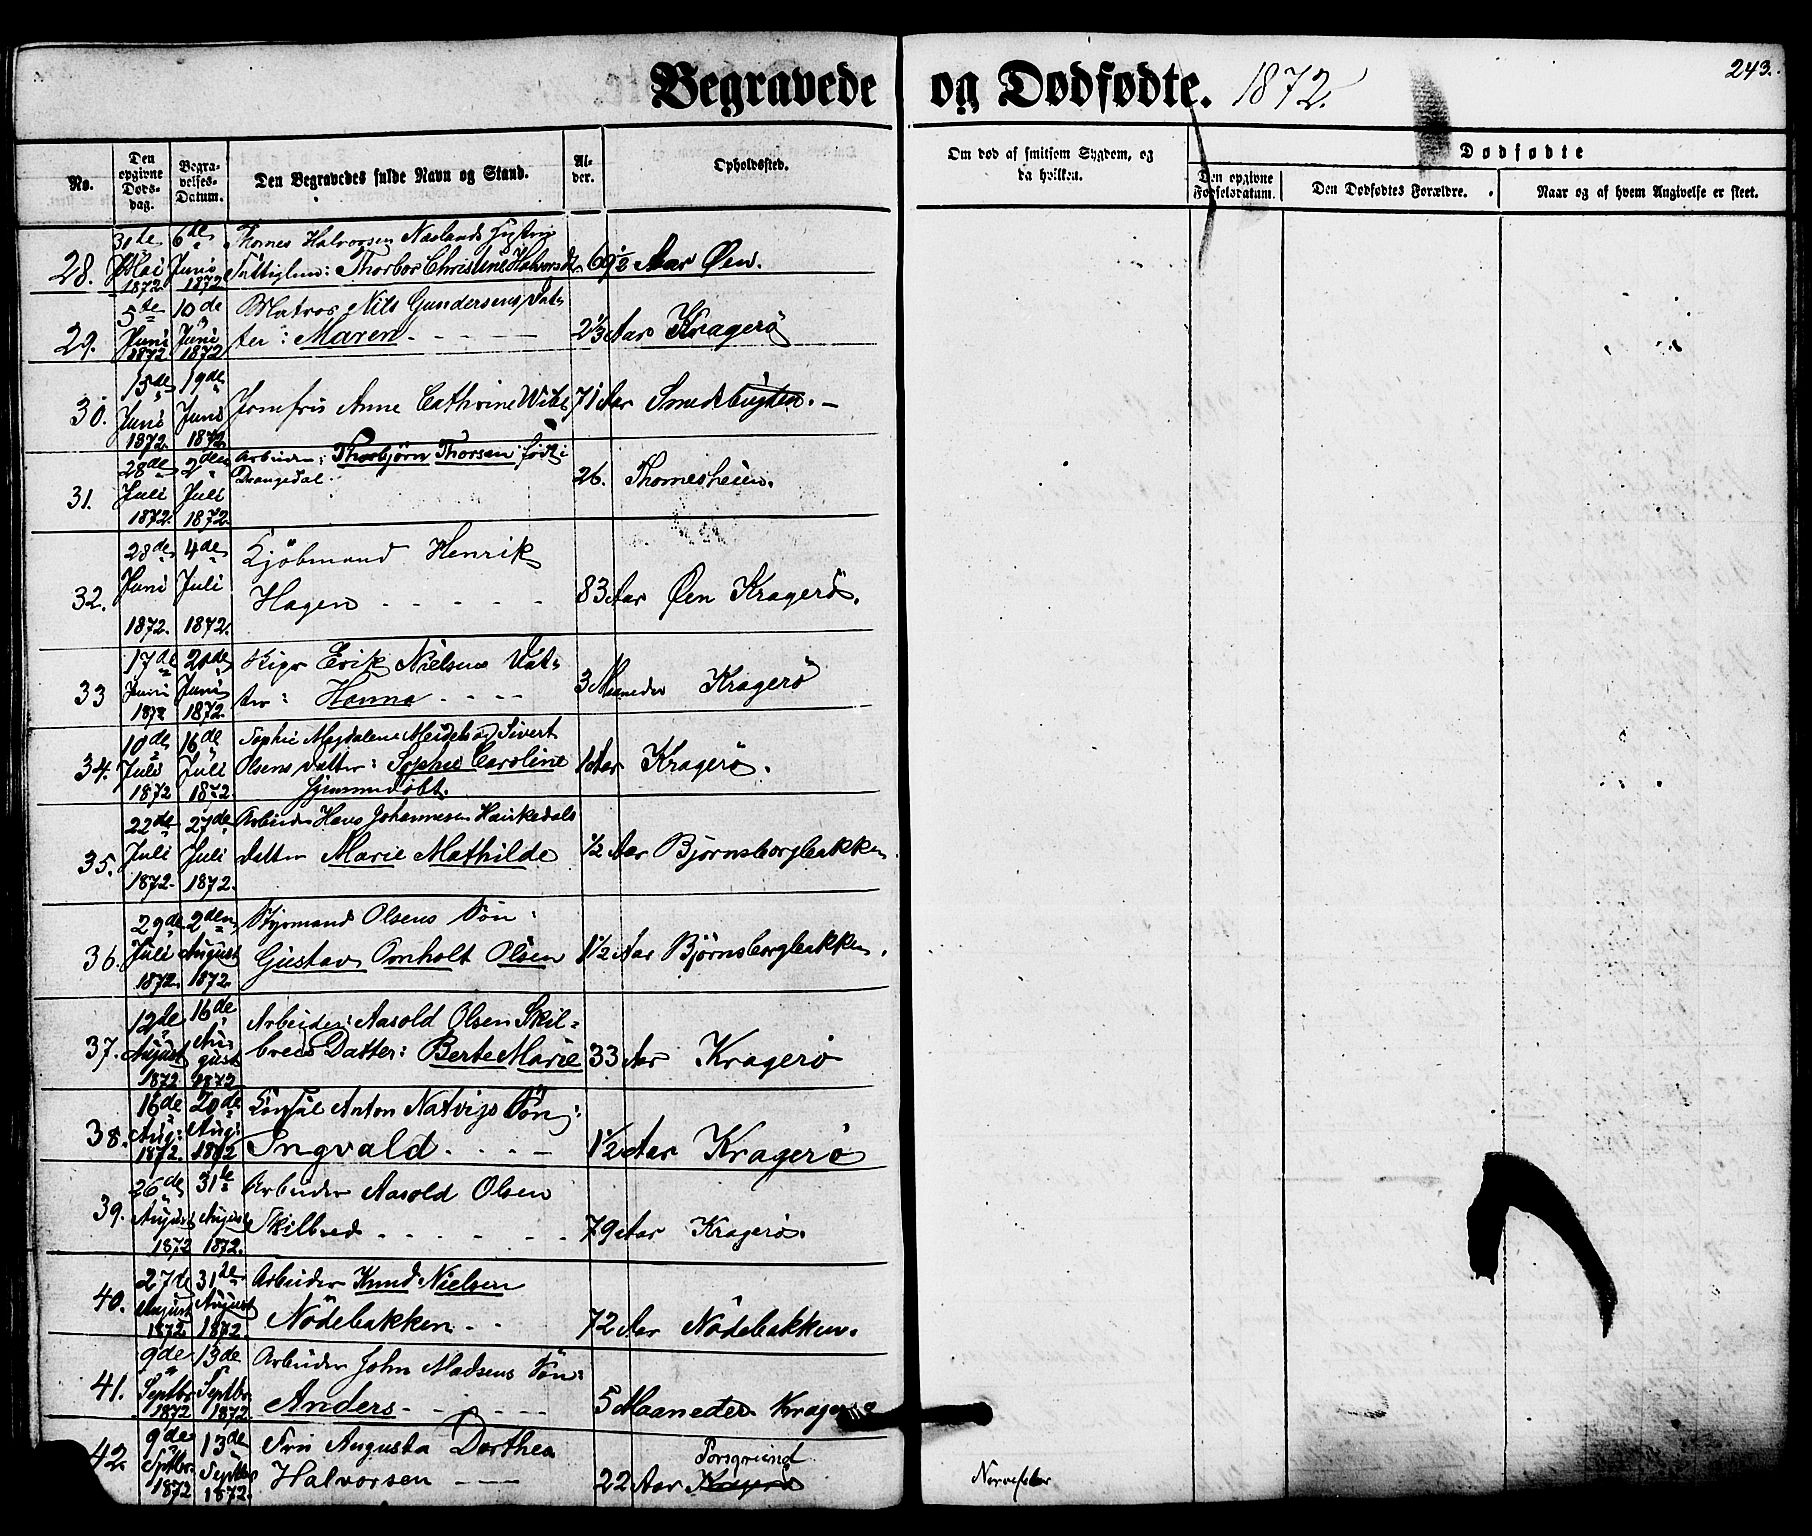 Begravede og Dødfødte. 1872.
243.
No.
Den opgivne Døds-dag.
Begra-velses-Datum.
Den Begravedes fulde Navn og Stand.
Al-der.
Opholdssted.
Om død af smitsom Sygdom, og da hvilken.
Dødfødte
Den opgivne Fødselsdatum.
Den Dødfødtes Forældre.
Naar og af hvem Angivelse er skeet.
31te 6de Thomes Halvorsen Naslands Hustru
28. Mai Juni Fattiglem: Thorbor Christine Halvorsdr 69½ Aar Øen.
1872 1872
5te 10de Matros Nils Gundersens Dat-
29. Juni Juni ter: Maren. - - - - 2⅓ Aar Kragerö
1872 1872
15de 19de
30. Juni Juni Jomfru Anne Cathrine Wibe 71 Aar Smedsbugten. -
1872 1872
28de 2den Arbeider: Thorbjörn Thorsen født i
31. Juli Juli Drangedal. 26. Thomesheien.
1872. 1872.
28de 4de Kjöbmand Henrik
32. Juni Juli Hagen - - - - - 83 Aar Øen Kragerö.
1872. 1872.
17de 20de Skipr Erik Nielsens Dat-
33 Juni Juni ter: Hanna - - - - 3 Maaneder Kragerö
1872 1872.
10de 16de Sophie Magdalene Meidel og Sivert
34. Juli Juli Olsens Datter: Sophie Caroline 1 Aar Kragerö.
1872 1872 hjemmedøbt.
22de 27de Arbeider Hans Johannesen Haukedals
35. Juli Juli Datter Marie Mathilde ½ Aar Björnsborgbakken.
1872. 1872.
29de 2den Styrmand Olsens Sön:
36. Juli August Gustav Omholt Olsen 1½ Aar Björnsborgbakken.
1872. 1872.
12de 16de Arbeider: Aasold Olsen Skil-
37. August Au-gust breds Datter: Berte Marie 33 Aar Kragerö
1872 1872
16de 20de Konsul Anton Natvigs Sön:
38. Aug: Aug: Ingvald. . . . - 1½ Aar Kragerö
1872. 1872
26de 31te Arbeider Aasold Olsen
39. August August Skilbred - - - - - - 79 Aar Kragerö.
1872 1872.
27de 31de Arbeider Knud Nielsen
40. August August Nödebakken - - 72 Aar Nödebakken.
1872 1872.
9de 13de Arbeider John Madsens Sön:
41. Septbr. Septbr. Anders - - - - - 5 Maaneder Kragerö
1872 1872.
9de 13de Fru Augusta Dorthea Porsgrund
42. Septbr. Septbr. Halvorsen - - - 22 Aar Kragerö Nervefeber
1872 1872.